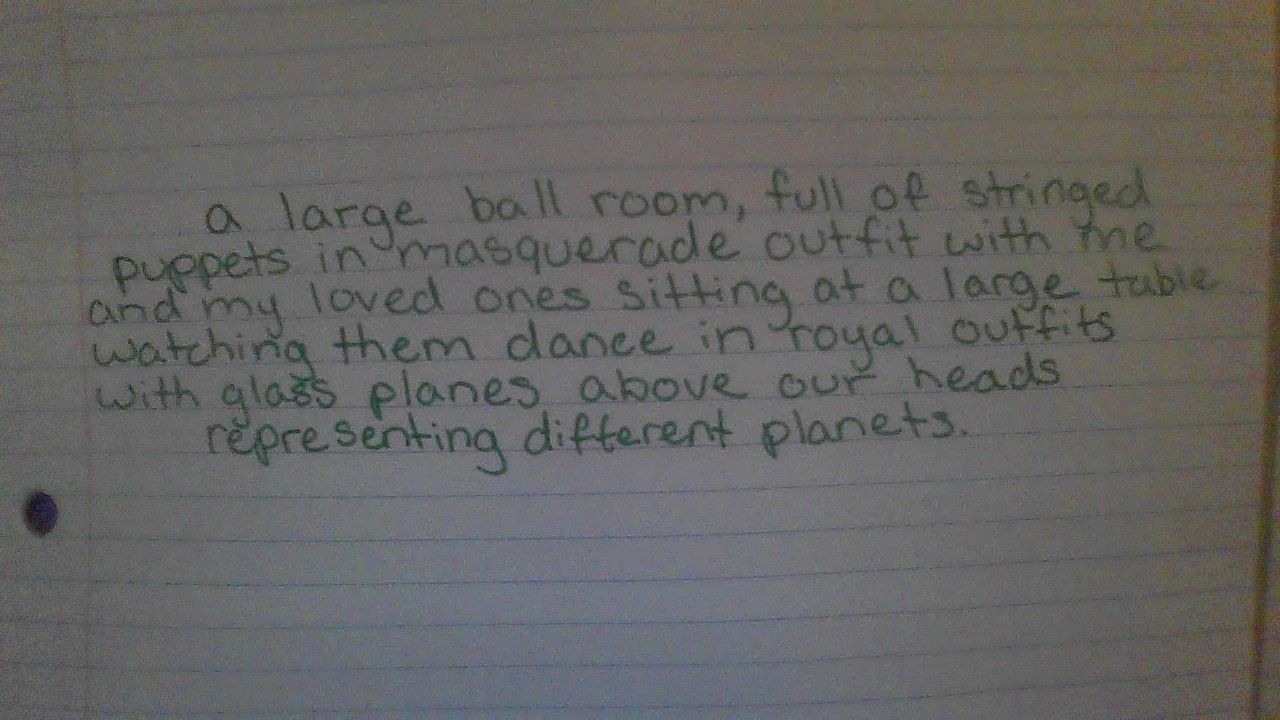 a large ball room, full of stringed
puppets in masquerade outfit with me
and my loved ones sitting at a large table
watching them dance in royal outfits
with glass planes above our heads
representing different planets.